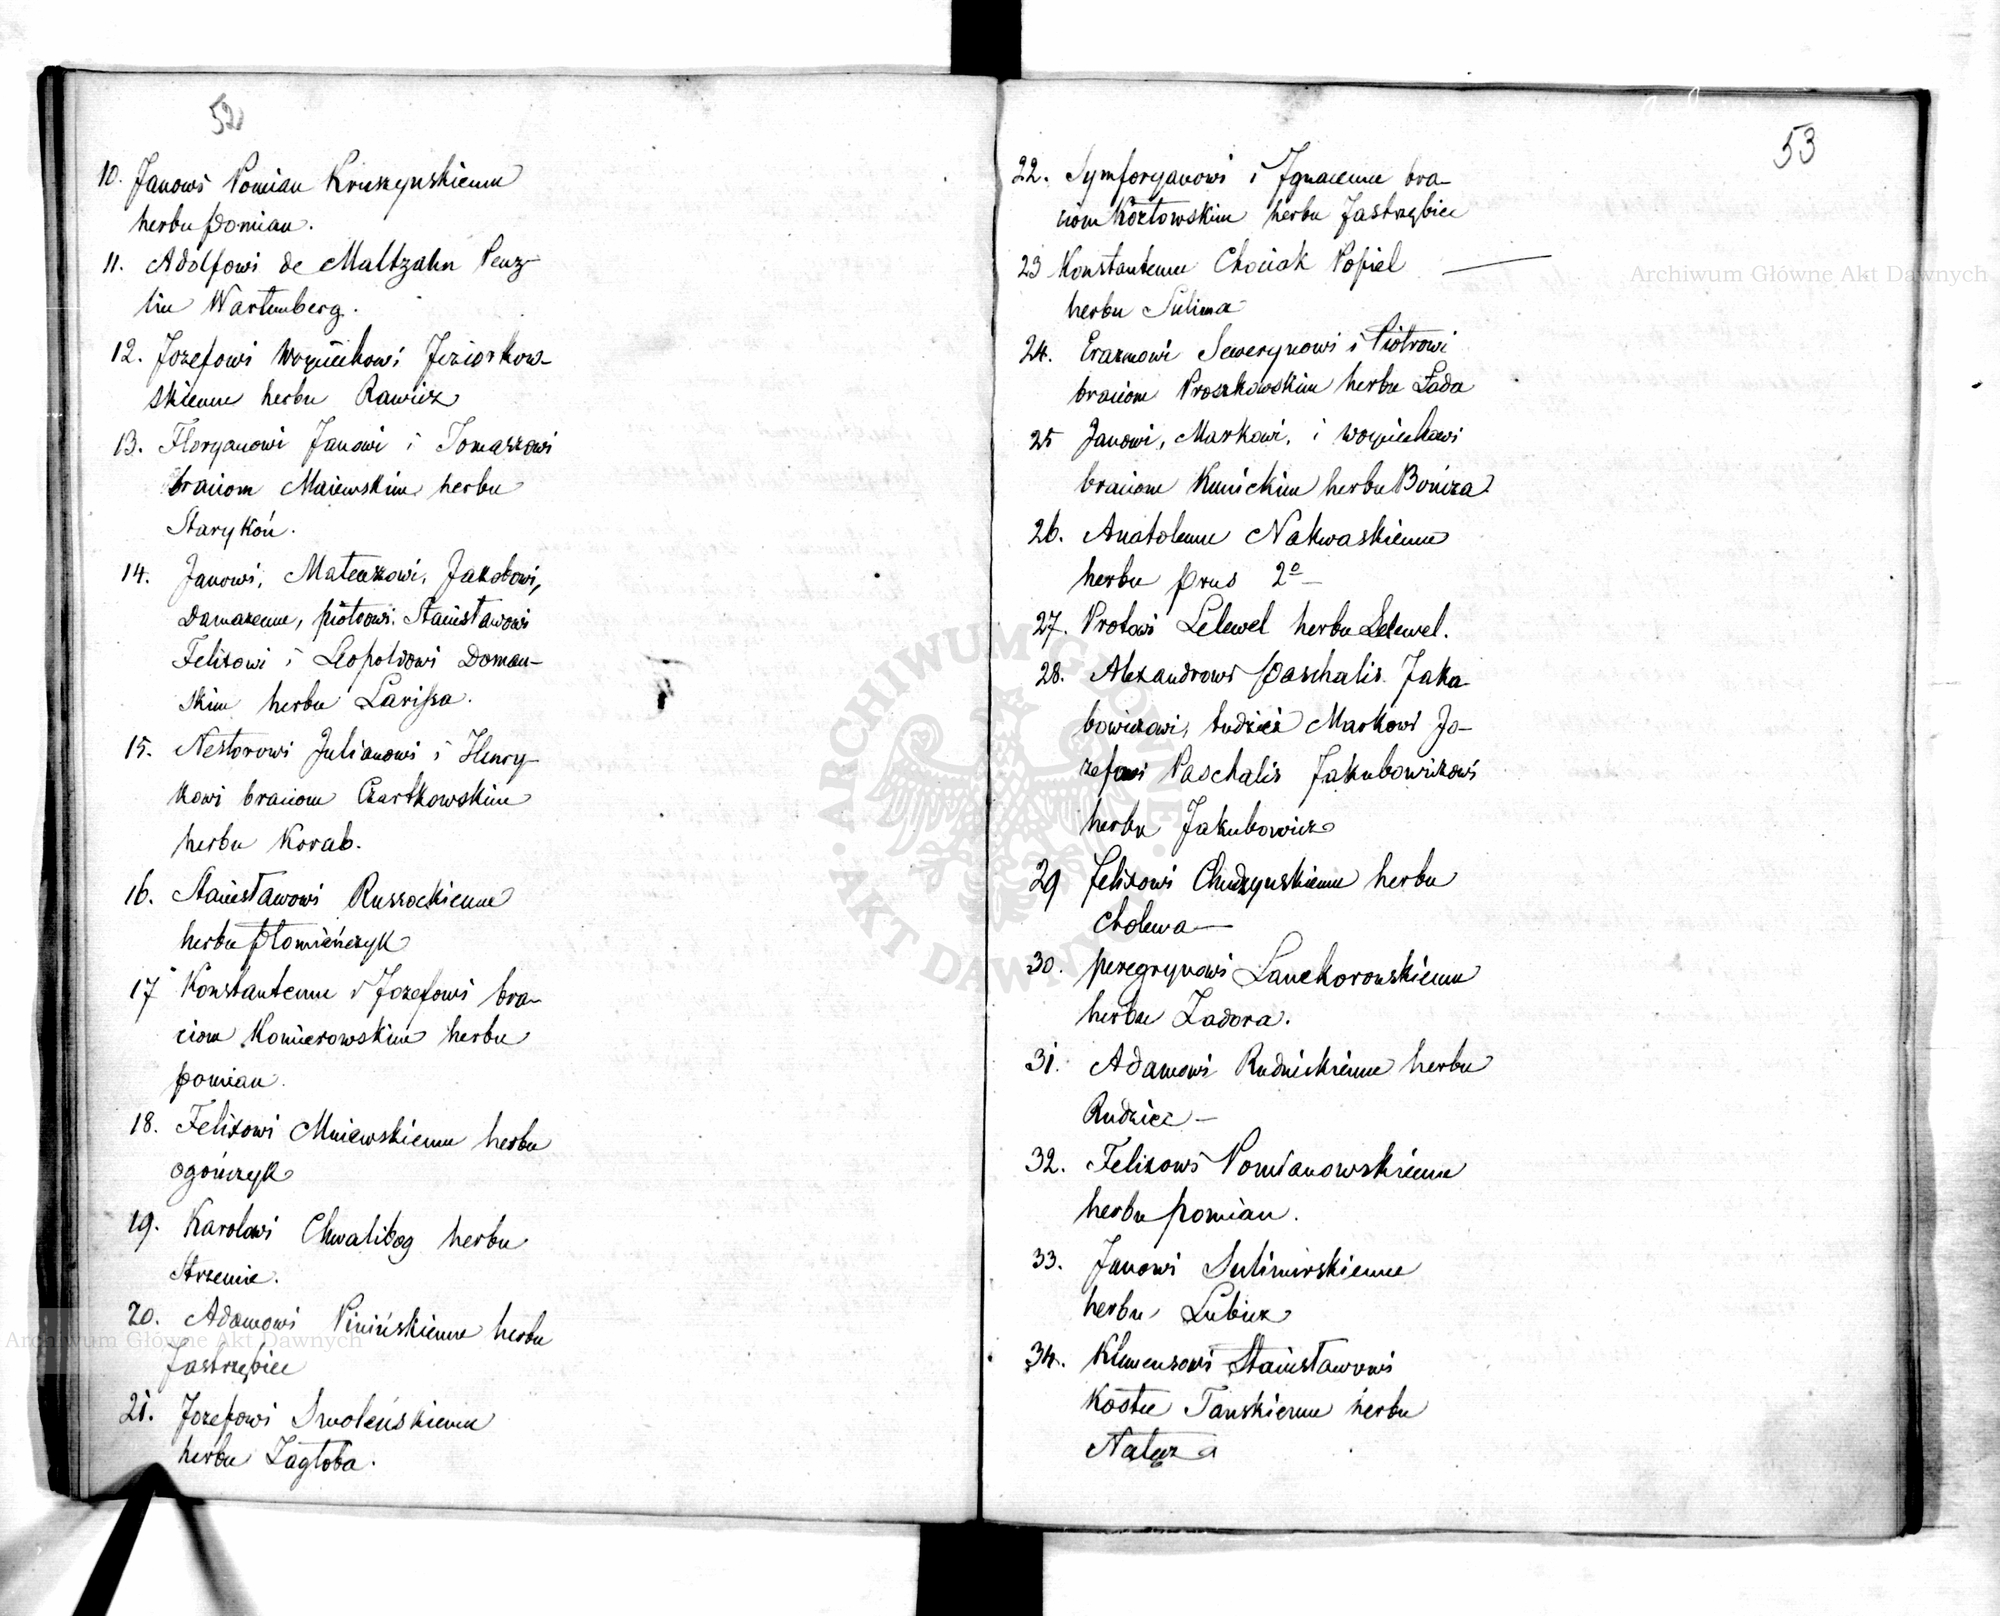 52
10. Janowi Pomian Kruszynskiemu
herbu Pomian.
11. Adolfowi de Maltzahn Penz-
lin Wartenberg.
12. Jozefowi Woyciechowi Jeziorkow-
skiemu herbu Rawicz
13. Floryanowi Janowi i Tomaszowi
braciom Maiewskim herbu
Starykoń.
14. Janowi, Mateuszowi, Jakobowi,
Damazemu, Piotrowi, Stanisławowi
Felixowi i Leopoldowi Doman-
skim herbu Larissa.
15. Nestorowi Julianowi i Henry-
kowi braciom Czartkowskim
herbu Korab.
16. Stanisławowi Russockiemu
herbu Płomieńczyk
17 Konstantemu i Jozefowi bra-
ciom Komierowskim herbu
Pomian.
18. Felixowi Mniewskiemu herbu
Ogończyk
19. Karolowi Chwalibog herbu
Strzemie.
20. Adamowi Pinińskiemu herbu
Jastrzębiec
21. Jozefowi Smoleńskiemu
herbu Zagłoba.
53
22. Symforyanowi i Ignacemu bra-
ciom Kozłowskim herbu Jastrzębiec
23 Konstantemu Chościak Popiel
herbu Sulima
24. Erazmowi Sewerynowi i Piotrowi
braciom Proszkowskim herbu Łada
25 Janowi, Markowi, i Woyciechowi
braciom Kunickim herbu Bończa
26. Anatolemu Nakwaskiemu
herbu Prus 2º
27. Protowi Lelewel herbu Lelewel.
28. Alexandrowi Paschalis Jaku
bowiczowi, tudzież Markowi Jo-
zefowi Paschalis Jakubowiczowi
herbu Jakubowicz
29 Felixowi Chudzynskiemu herbu
Cholewa
30. Peregrynowi Lanckoronskiemu
herbu Zadora.
31. Adamowi Rudnickiemu herbu
Rudzicz
32. Felixowi Pomianowskiemu
herbu Pomian.
33. Janowi Sulimirskiemu
herbu Lubicz
34. Klemensowi Stanisławowi
Kostce Tanskiemu herbu
Nałęcz
ARCHIWUM GŁÓWNE AKT DAWNYCH
Archiwum Główne Akt Dawnych
Archiwum Główne Akt Dawnych